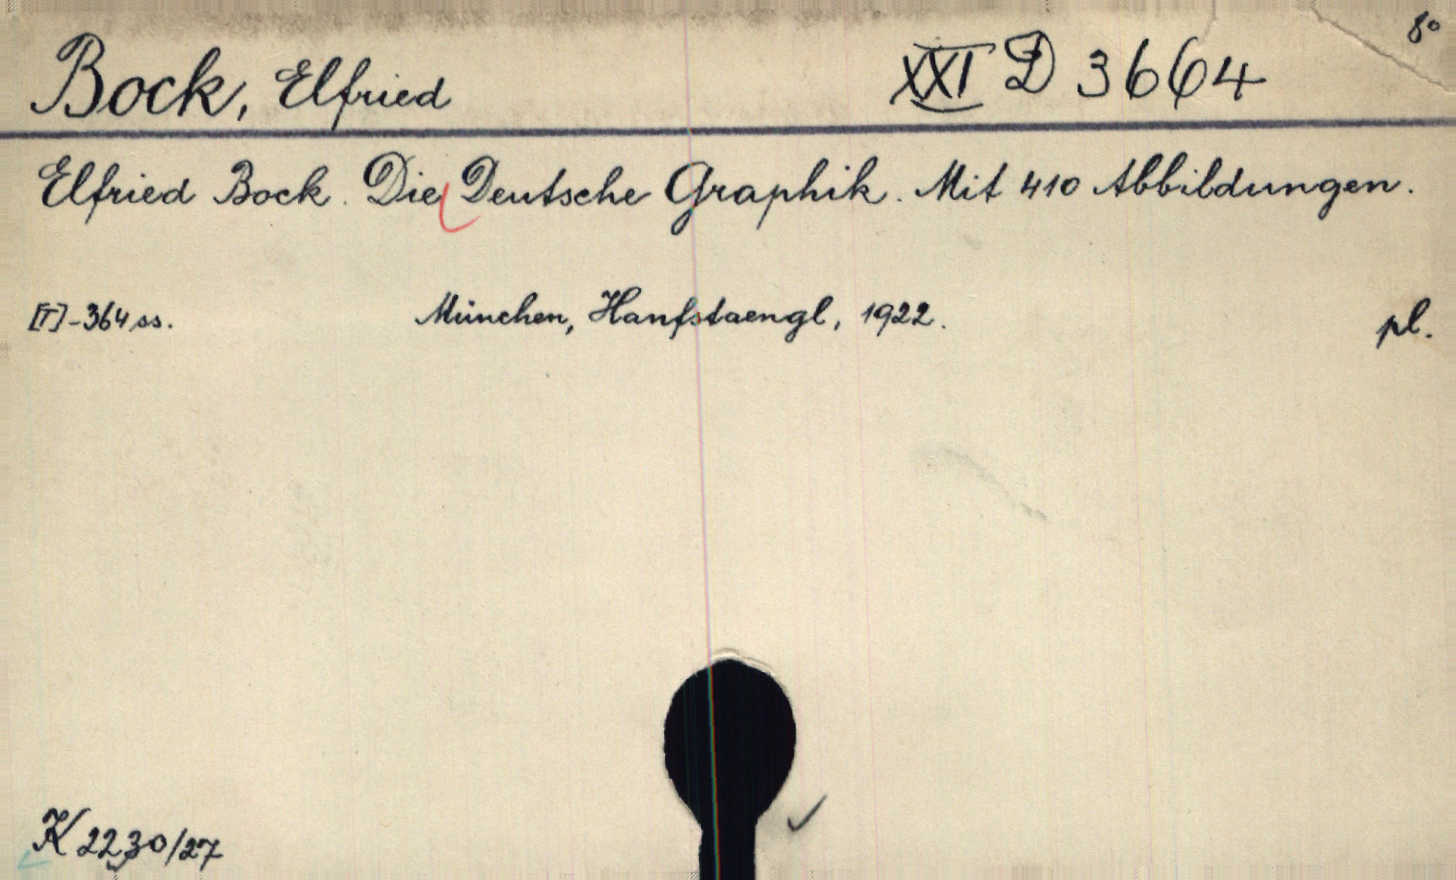 8°
Bock, Elfried XXI D 3664
Elfried Bock. Die Deutsche Graphik. Mit 410 Abbildungen.
[T]-364 ss. München, Hanfstaengl, 1922. pl.
K 2230/27